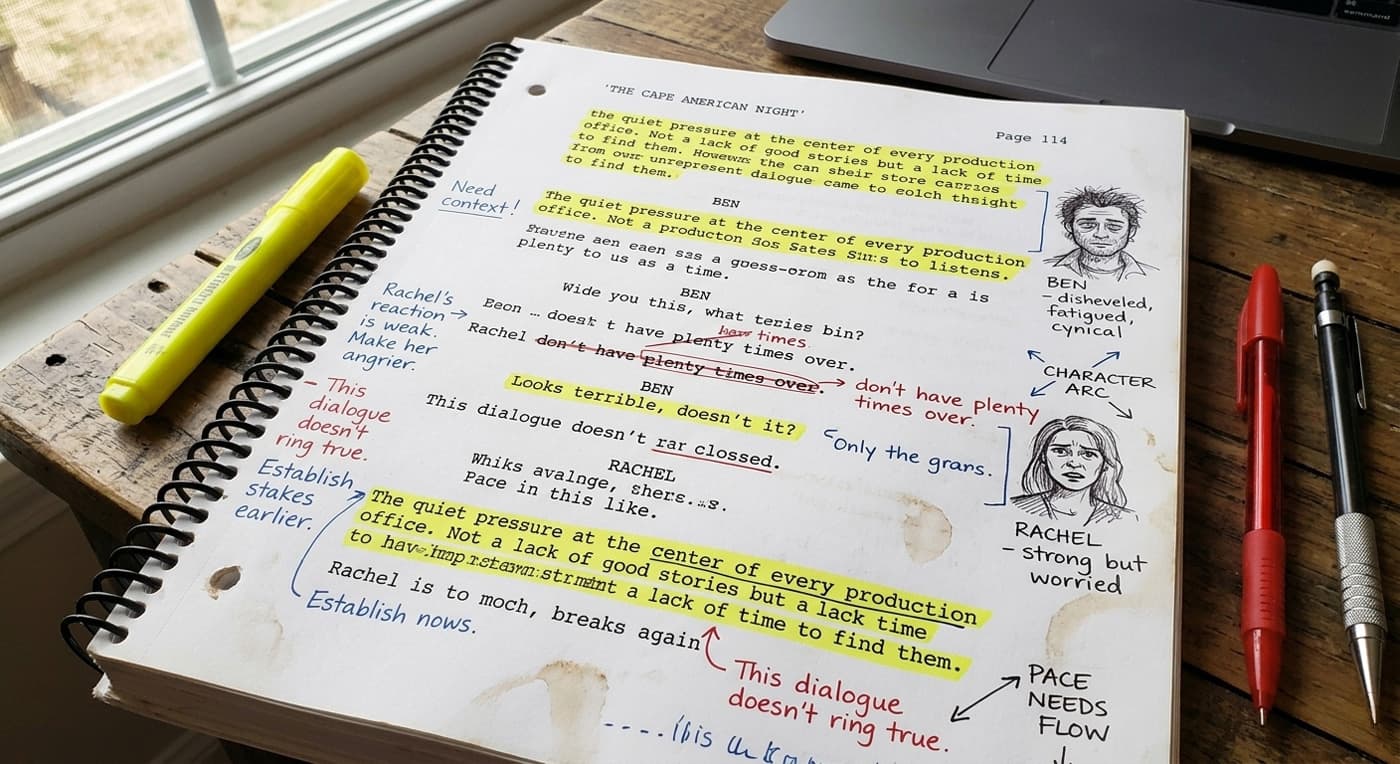 'THE CAPE AMERICAN NIGHT'
Page 114
the quiet pressure at the center of every production
office. Not a lack of good stories but a lack of time
to find them. the can sheir store carries
from unrepresent dalogue came to eolch thsight
to find them.
Need
context!
BEN
The quiet pressure at the center of every production
office. Not a producton Sos Sates to listens.
aen eaen sas a as the for a is
plenty to us as a time.
BEN
- disheveled,
fatigued,
cynical
BEN
Wide you this, what teries bin?
Eeon … doest t have plenty times over.
times.
Rachel don't have plenty times over.
don't have plenty
times over.
Rachel's
reaction
is weak.
Make her
angrier.
CHARACTER
ARC
BEN
Looks terrible, doesn't it?
This dialogue doesn't rar clossed.
Only the grans.
- This
dialogue
doesn't
ring true.
RACHEL
Whiks avalnge,
Pace in this like.
RACHEL
- strong but
worried
Establish
stakes
earlier.
The quiet pressure at the center of every production
office. Not a lack of good stories but a lack time
to a lack of time to find them.
Rachel is to moch, breaks again
Establish nows.
This dialogue
doesn't ring true.
PACE
NEEDS
FLOW